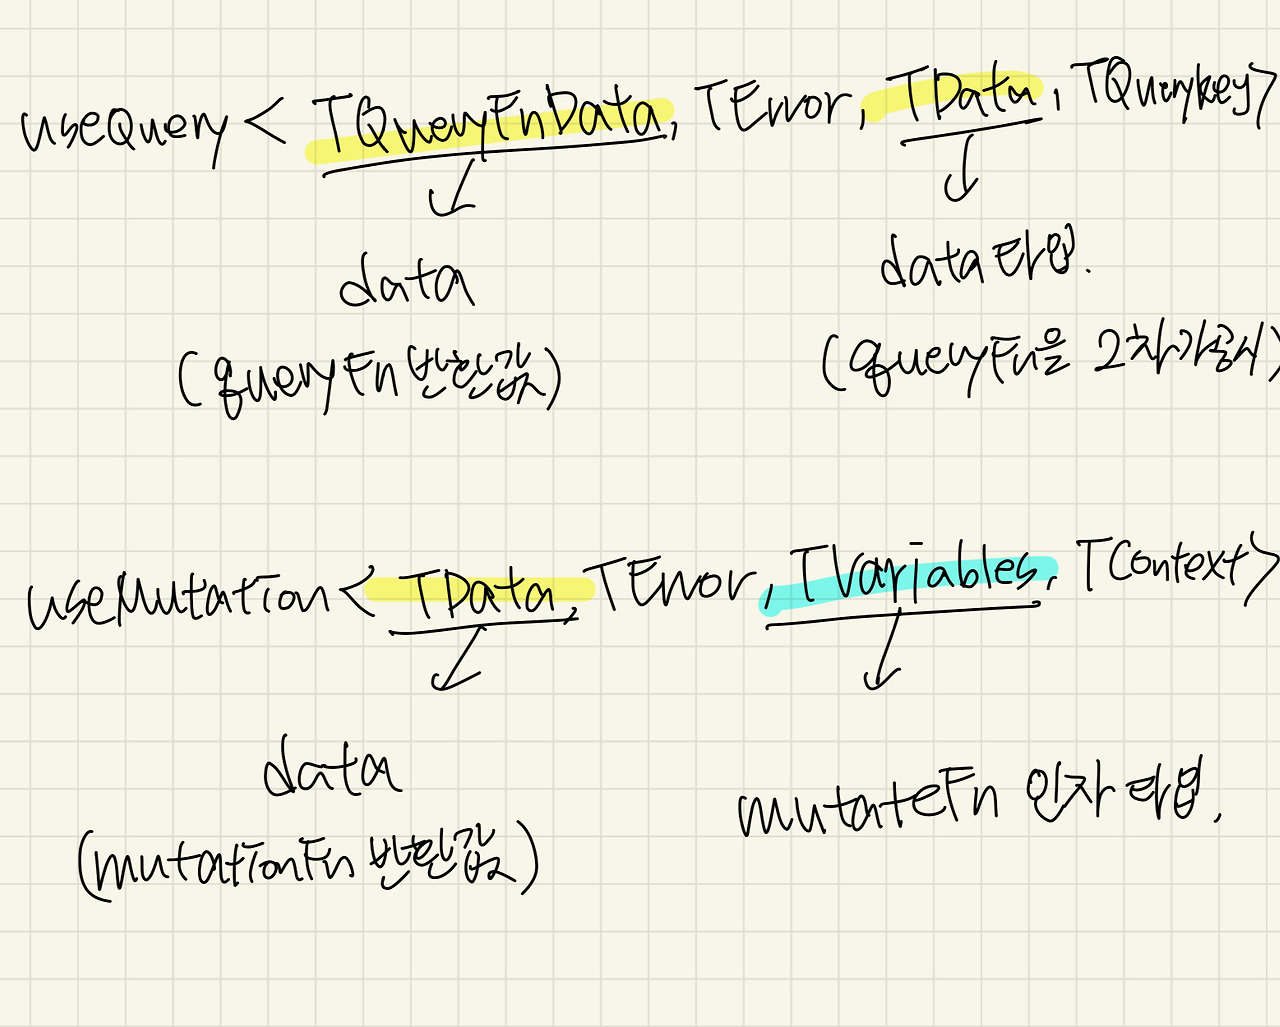 useQuery < TQueryFnData, TError, TData, TQueryKey>
data
(queryFn 반환값)
data 타입.
(queryFn을 2차가공시)
useMutation < TData, TError, TVariables, TContext>
data
(mutationFn 반환값)
mutateFn 인자 타입.